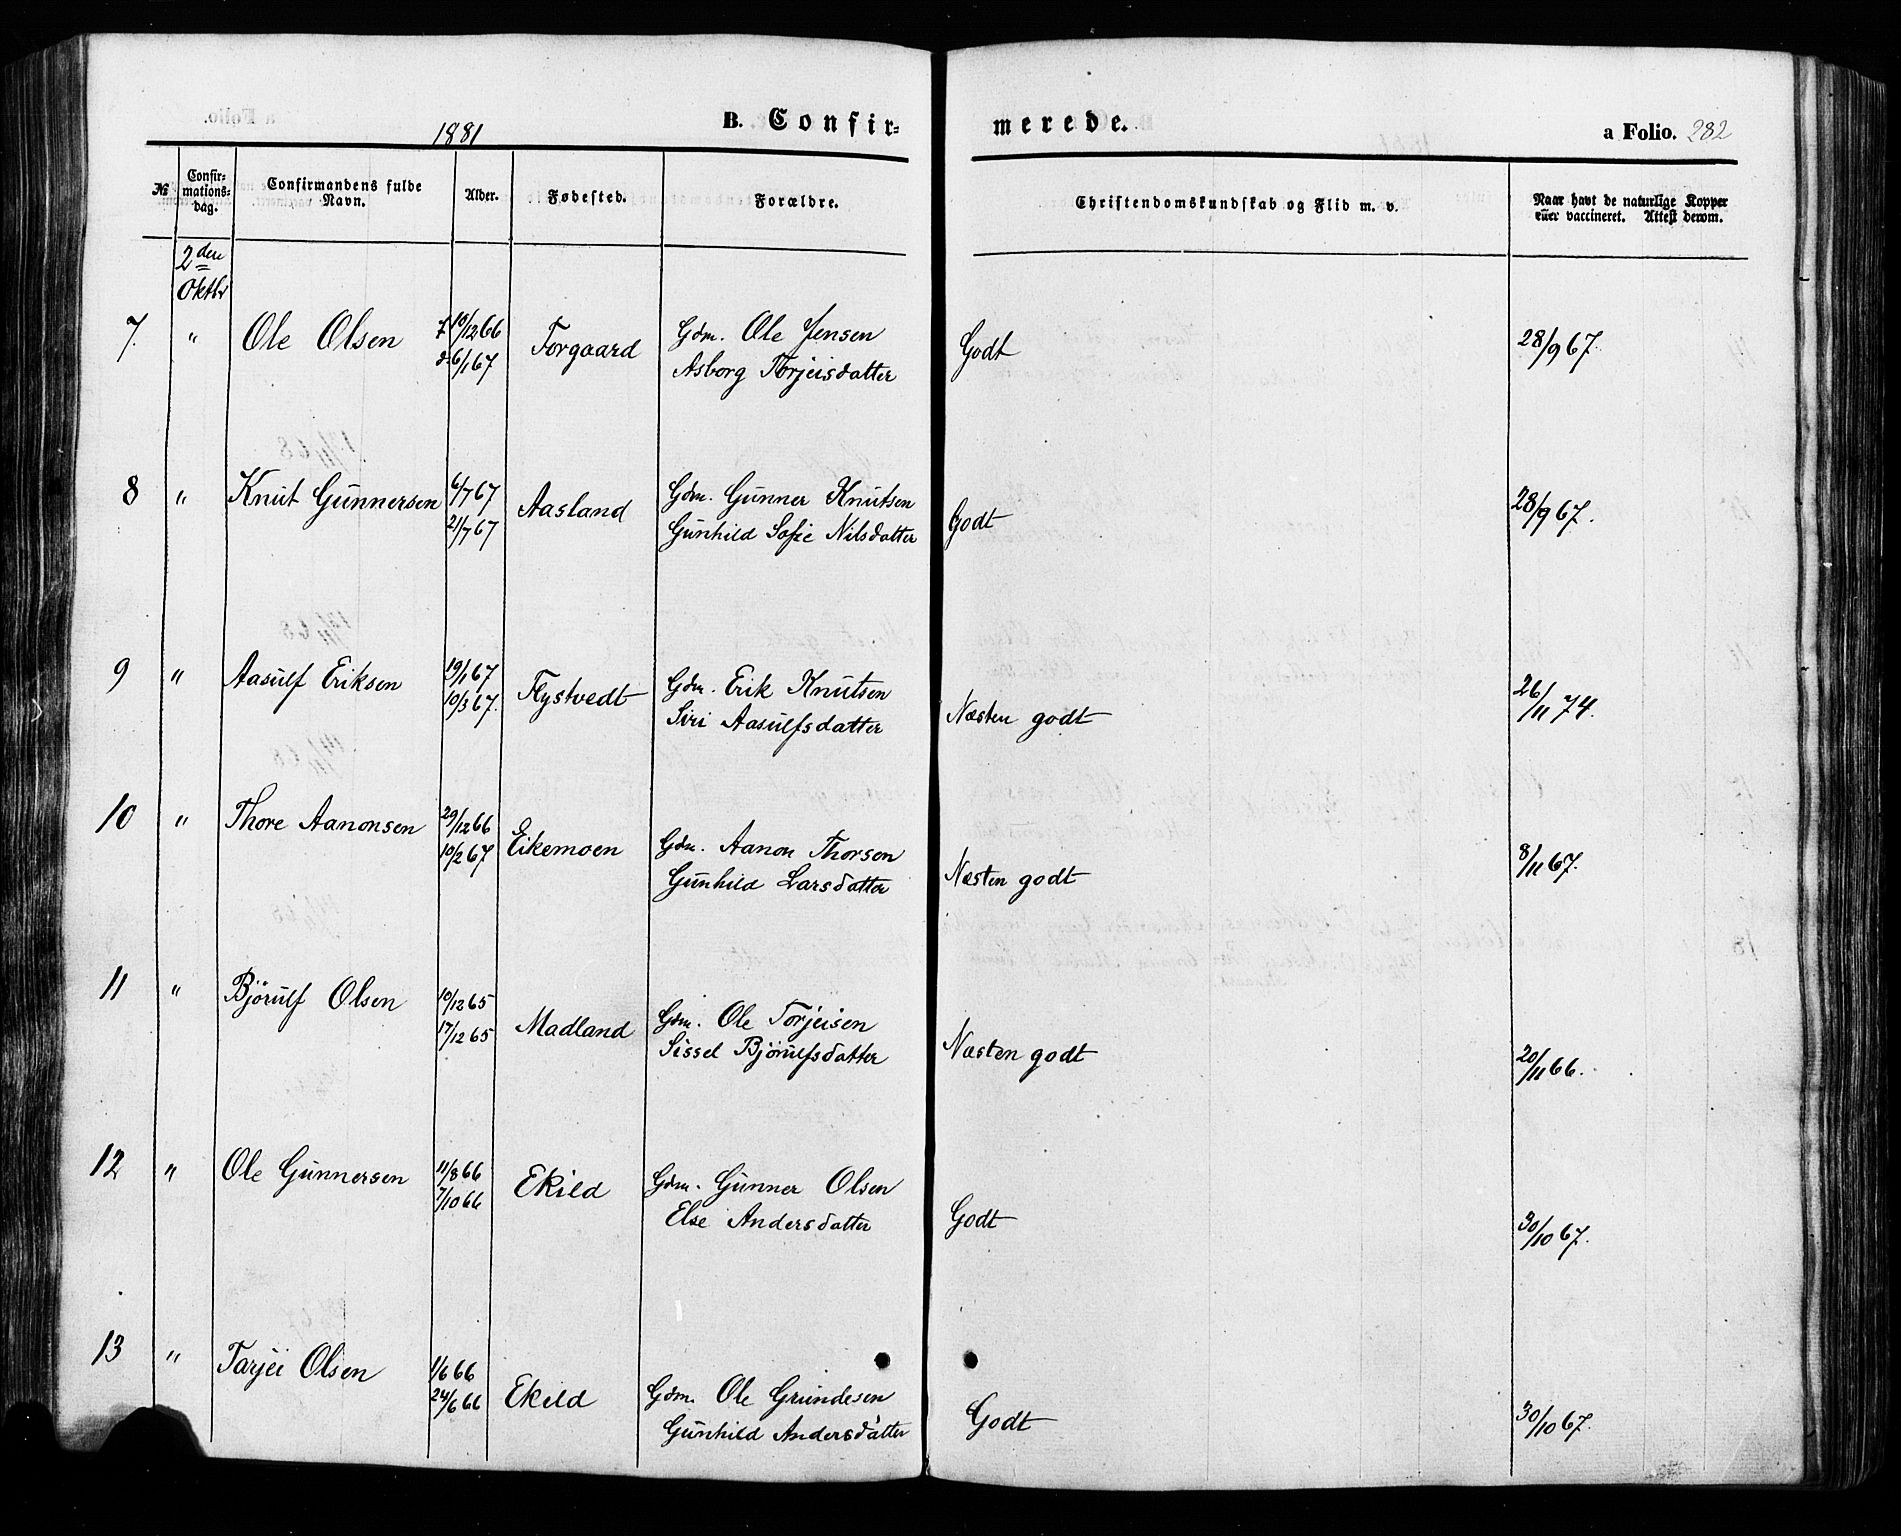 1881 B. Confir- merede. a Folio. 282
№ Confir-mations-dag. Confirmandens fulde Navn. Alder. Fødested. Forældre. Christendomskundskab og Flid m. v. Naar havt de naturlige Kopper eller vaccineret. Attest derom.
2den
Oktbr
7. " Ole Olsen f 10/12 66 Torgaard Gdm. Ole Jensen Godt 28/9 67.
d 6/1 67 Asborg Torjeisdatter
8 " Knut Gunnersen 6/7 67 Aasland Gdm. Gunner Knutsen Godt 28/9 67.
21/7 67 Gunhild Sofie Nilsdatter
9 " Aasulf Eriksen 19/1 67 Flystvedt Gdm. Erik Knutsen Næsten godt 26/11 74.
10/3 67. Siri Aasulfsdatter
10 " Thore Aanonsen 29/12 66 Eikemoen Gdm. Aanon Thorsen Næsten godt 8/11 67.
10/2 67 Gunhild Larsdatter
11 " Bjørulf Olsen 10/12 65 Madland Gdm. Ole Torjeisen Næsten godt 20/11 66.
17/12 65 Sissel Bjørulfsdatter
12 " Ole Gunnersen 11/8 66 Ekild Gdm. Gunner Olsen Godt 30/10 67.
7/10 66 Else Andersdatter
13 " Tarjei Olsen 1/6 66 Ekild Gdm. Ole Grundesen Godt 30/10 67.
24/6 66 Gunhild Andersdatter